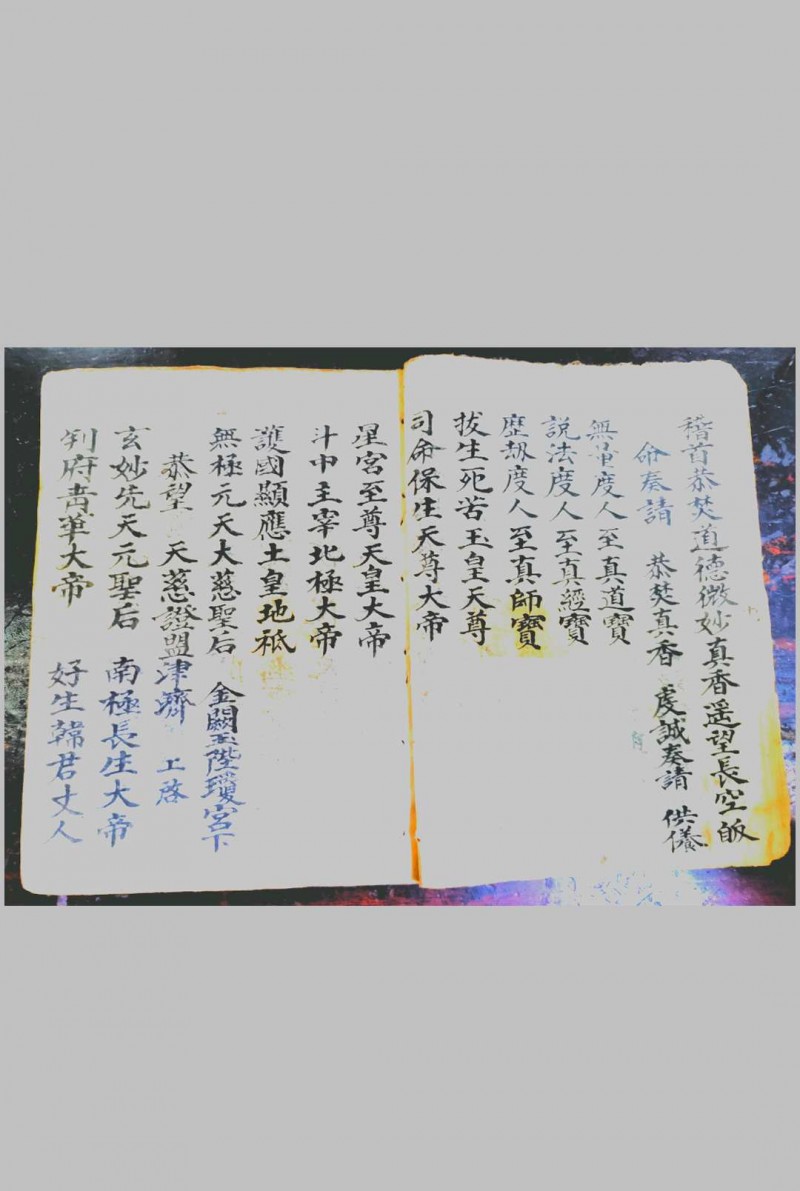 稽首恭焚道德微妙真香遥望長空皈
命奏請　恭焚真香　虔誠奏請　供養
無量度人至真道寶
說法度人至真經寶
歷刼度人至真師寶
拔生死苦玉皇天尊
司命保生天尊大帝
星宮至尊天皇大帝
斗中主宰北極大帝
護國顯應土皇地祇
無極元天大慈聖后　金闕玉陛瓊宮下
恭望　天慈證盟津濟　上啓
玄妙先天元聖后　南極長生大帝
判府青華大帝　好生韓君丈人